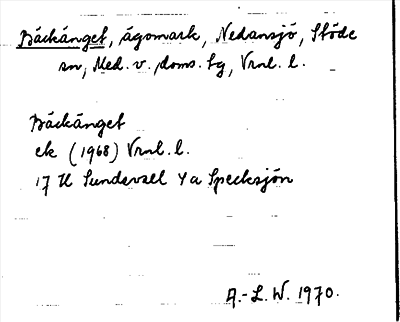 Bäckänget, ägomark, Nedansjö, Stöde
sn, Med. v. doms. tg, Vrnl. l.
Bäckänget
ek (1968) Vrnl. l.
17 H Sundsvall 4 a Specksjön
A.-L. W. 1970.